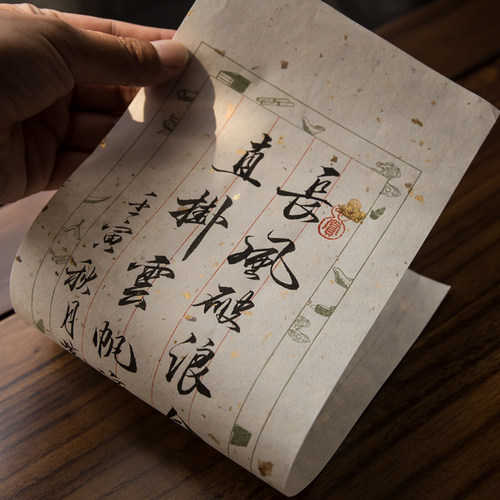 長風破浪
直掛雲帆
壬寅秋月